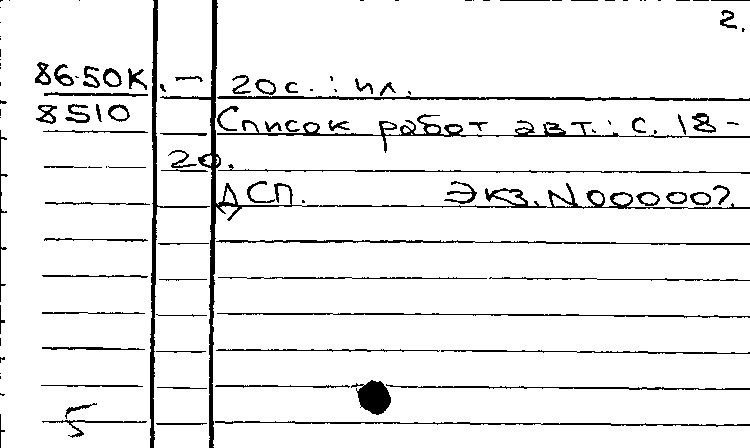 2.
86-50К. – 20с. : ил.
8510 Список работ авт.: с. 18-
20.
ДСП. Экз.N000007.
5